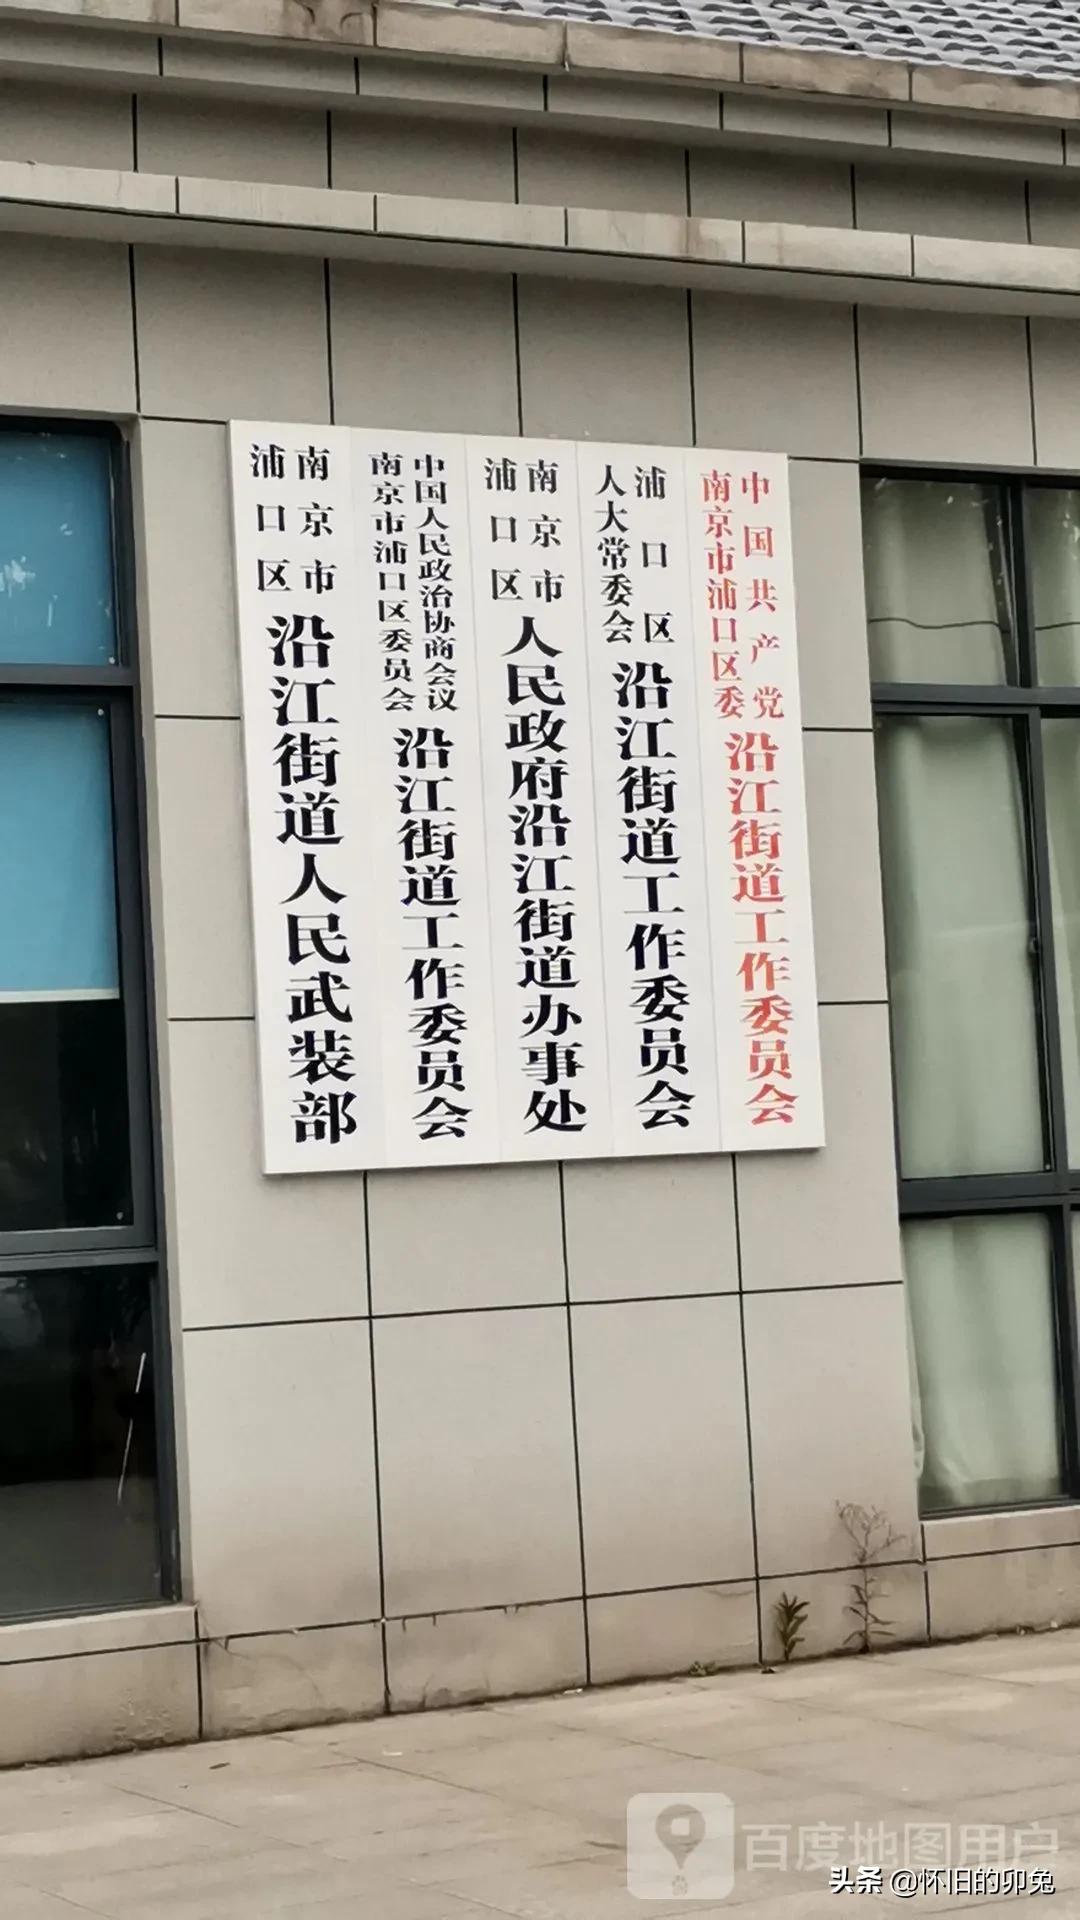 中国共产党
南京市浦口区委
沿江街道工作委员会
浦口区
人大常委会
沿江街道工作委员会
南京市
浦口区
人民政府沿江街道办事处
中国人民政治协商会议
南京市浦口区委员会
沿江街道工作委员会
南京市
浦口区
沿江街道人民武装部
百度地图用户
头条 @怀旧的卯兔